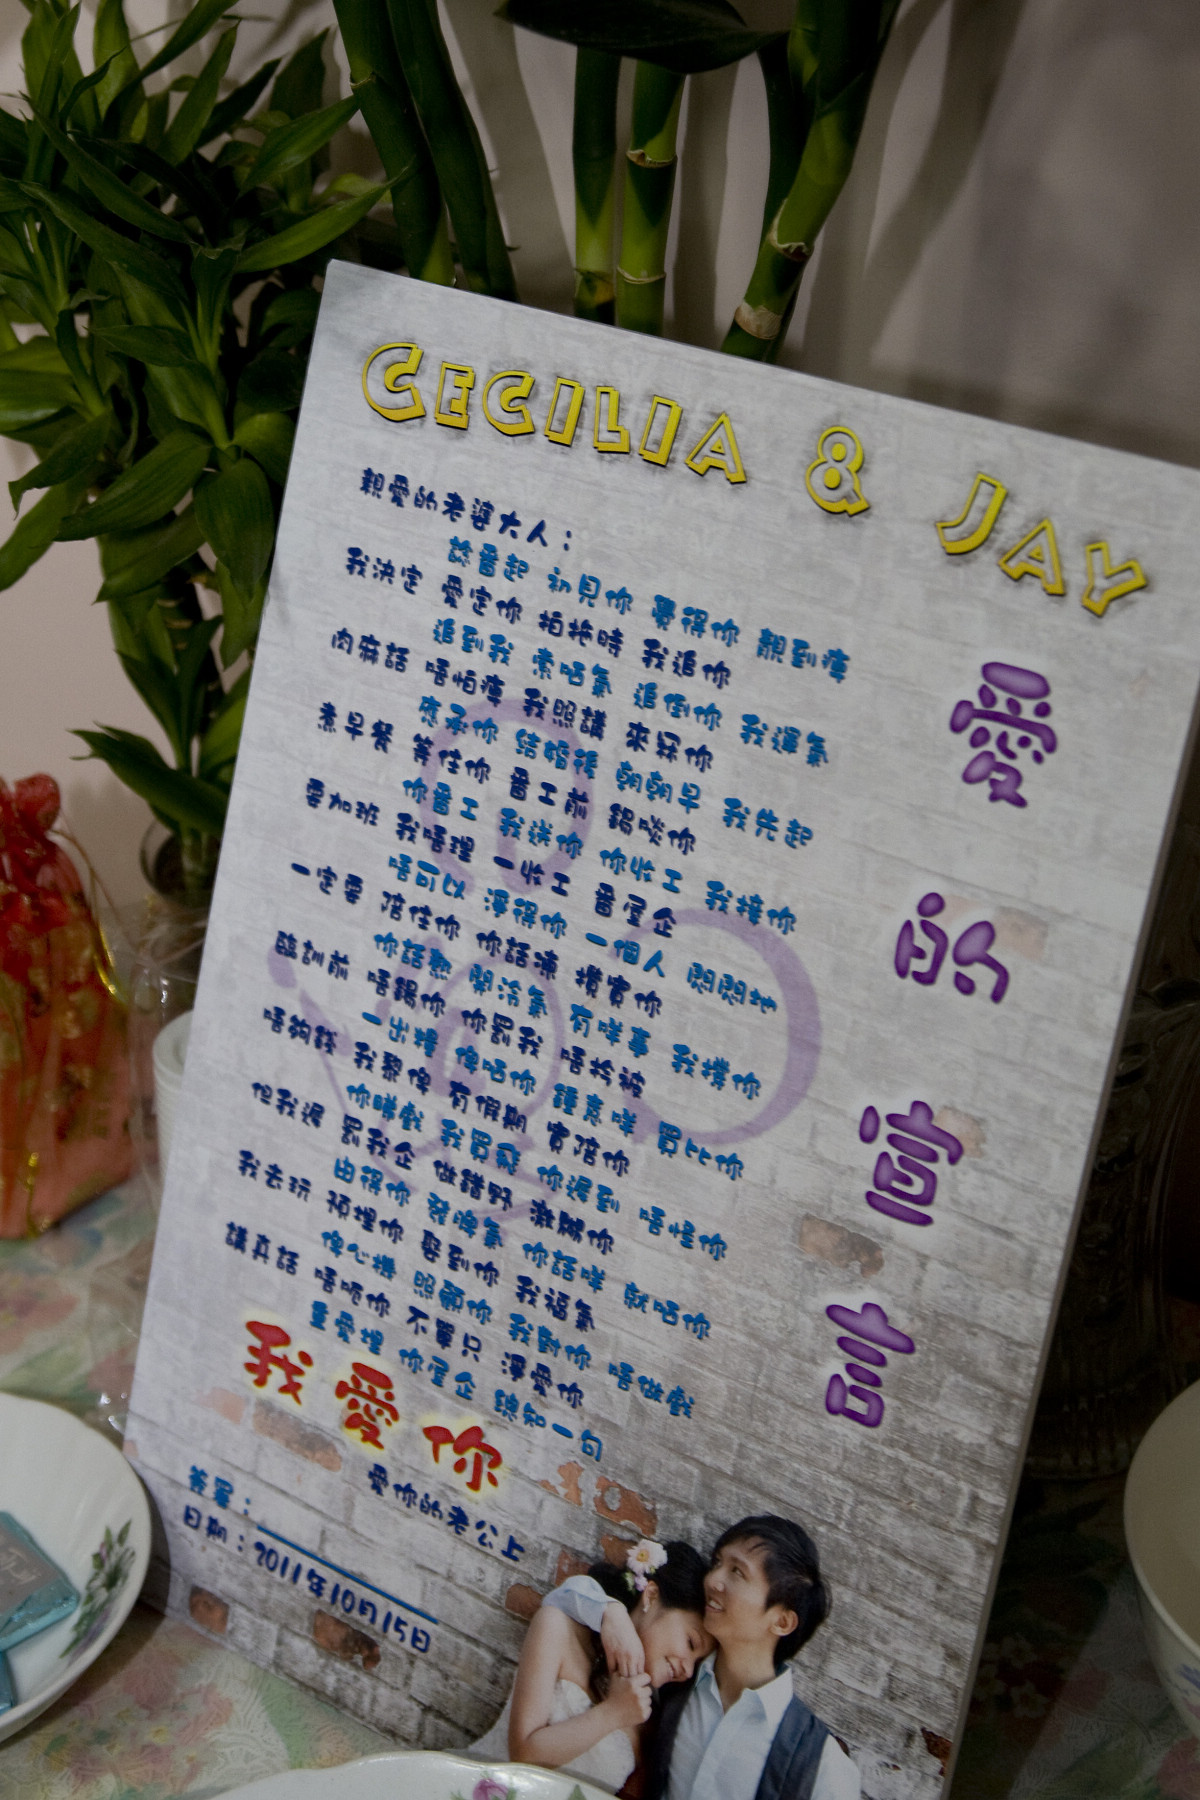 CECILIA & JAY
愛的宣言
親愛的老婆大人：
諗番起 初見你 覺得你 靚到瘴
我決定 愛定你 拍拖時 我追你
追到我 索哂氣 追倒你 我運氣
肉麻話 唔怕瘴 我照講 來冧你
應承你 結婚後 朝朝早 我先起
煮早餐 等住你 番工前 錫啖你
你番工 我送你 你收工 我接你
要加班 我唔理 一收工 番屋企
唔可以 淨得你 一個人 悶悶地
一定要 陪住你 你話凍 攬實你
你話熱 開冷氣 有咩事 我撲你
臨訓前 唔錫你 你罰我 唔拎被
一出糧 俾哂你 鍾意咩 買比你
唔夠錢 我黎俾 有假期 實陪你
你睇戲 我買飛 你遲到 唔怪你
但我遲 罰我企 做錯野 激嬲你
由得你 發脾氣 你話咩 就哂你
我去玩 預埋你 娶到你 我福氣
俾心機 照顧你 我對你 唔做戲
講真話 唔呃你 不單只 淨愛你
重愛埋 你屋企 總知一句
我愛你
愛你的老公上
簽署：
日期：2011年10月15日